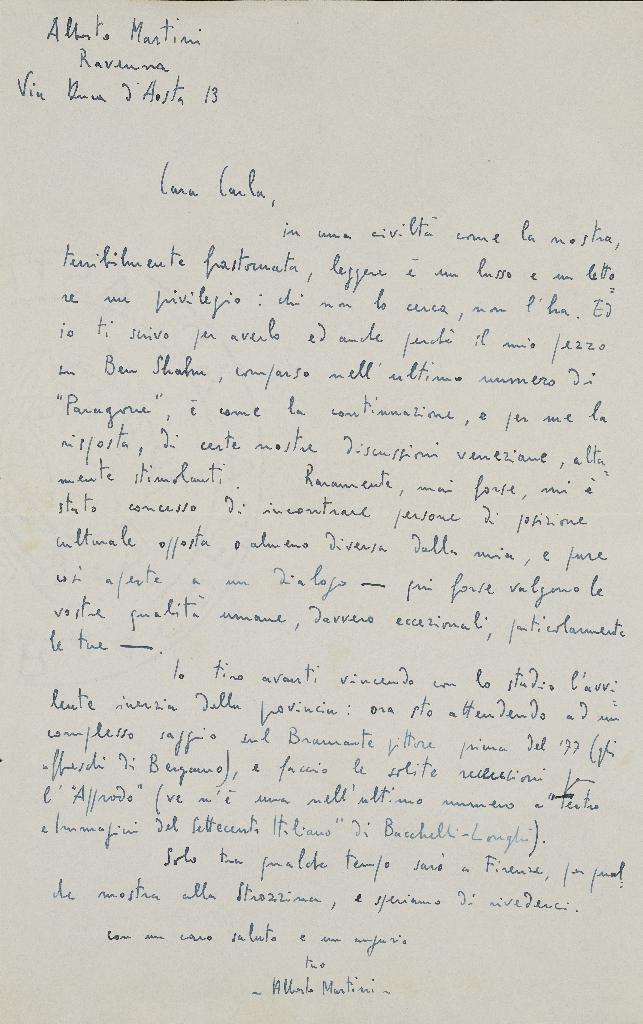 Alberto Martini
Ravenna
Via Duca d'Aosta 13
Cara Carla,
in una civiltà come la nostra,
terribilmente frastornata, leggere è un lusso e un letto=
re un privilegio: chi non lo cerca, non l'ha. Ed
io ti scrivo per averlo ed anche perchè il mio pezzo
su Ben Shahn, comparso nell'ultimo numero di
"Paragone", è come la continuazione, e per me la
risposta, di certe nostre discussioni veneziane, alta=
mente stimolanti. Raramente, mai forse, mi è
stato concesso di incontrare persone di posizione
culturale opposta o almeno diversa dalla mia, e pure
così aperte a un dialogo — qui forse valgono le
vostre qualità umane, davvero eccezionali, particolarmente
le tue —.
Io tiro avanti vincendo con lo studio l'avvi=
lente inerzia della provincia: ora sto attendendo ad un
complesso saggio sul Bramante pittore prima del '77 (gli
affreschi di Bergamo), e faccio le solite recensioni per
l'"Approdo" (ve n'è una nell'ultimo numero a "Teatro
e Immagini del Settecento Italiano" di Bacchelli-Longhi).
Solo tra qualche tempo sarò a Firenze, per qual=
che mostra alla Strozzina, e speriamo di rivederci.
con un caro saluto e un augurio
tuo
- Alberto Martini -